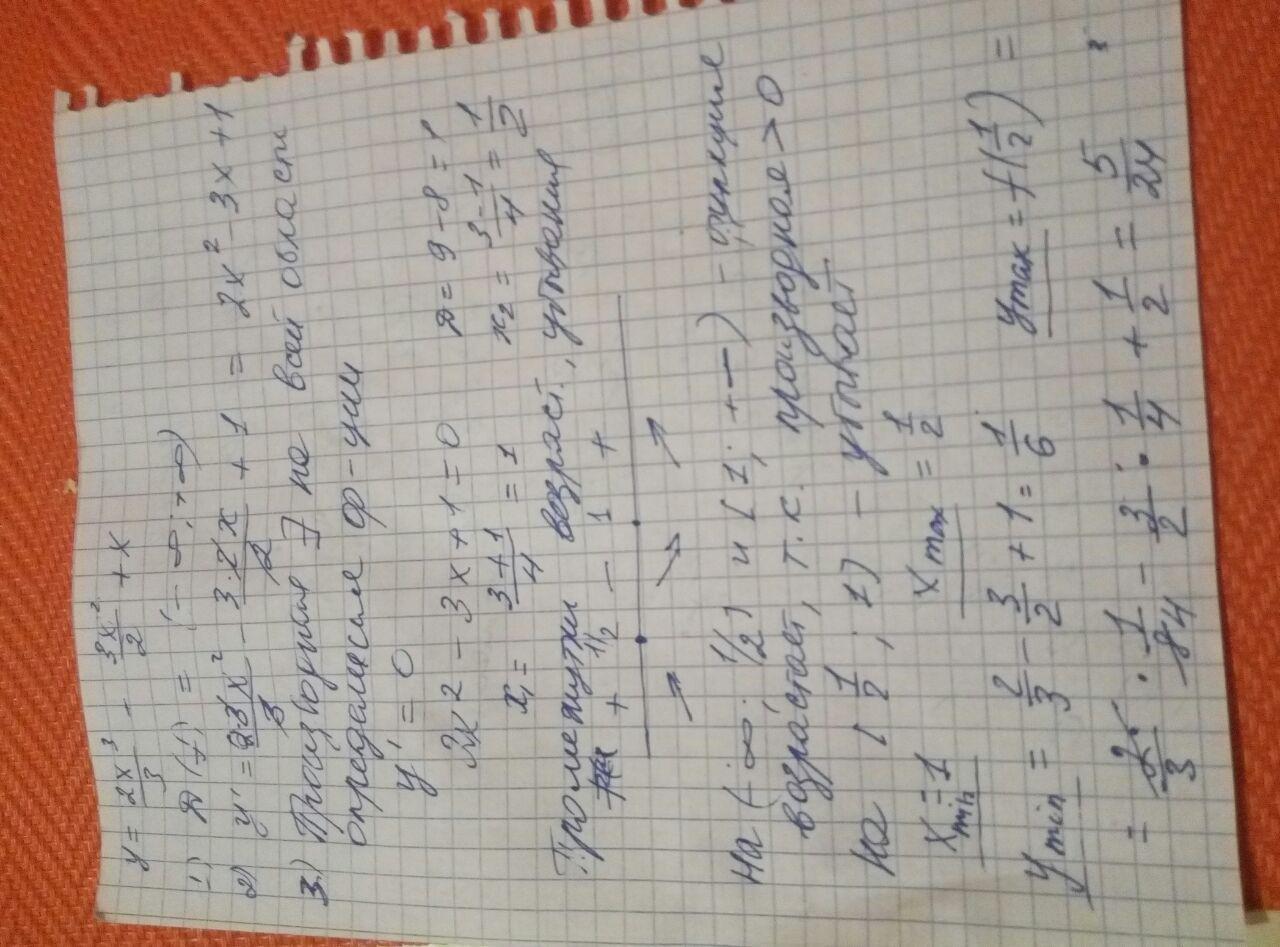 y = 2x³/3 - 3x²/2 + x
1) D(f) = (-∞; +∞)
2) y' = 2·3x²/3 - 3·2x/2 + 1 = 2x² - 3x + 1
3) Производная ∃ на всей области
определения ф-ции
y' = 0
2x² - 3x + 1 = 0 D = 9 - 8 = 1
x₁ = 3+1/4 = 1 x₂ = 3-1/4 = 1/2
Промежутки возраст., убывания
+ 1/2 - 1 +
↗ ↘ ↗
На (-∞; 1/2) и (1; +∞) - функция
возрастает, т.к. производная > 0
На (1/2; 1) - убывает
x min = 1 x max = 1/2
y min = 2/3 - 3/2 + 1 = 1/6 y max = f(1/2) =
= 2/3 · 1/84 - 3/2 · 1/4 + 1/2 = 5/24